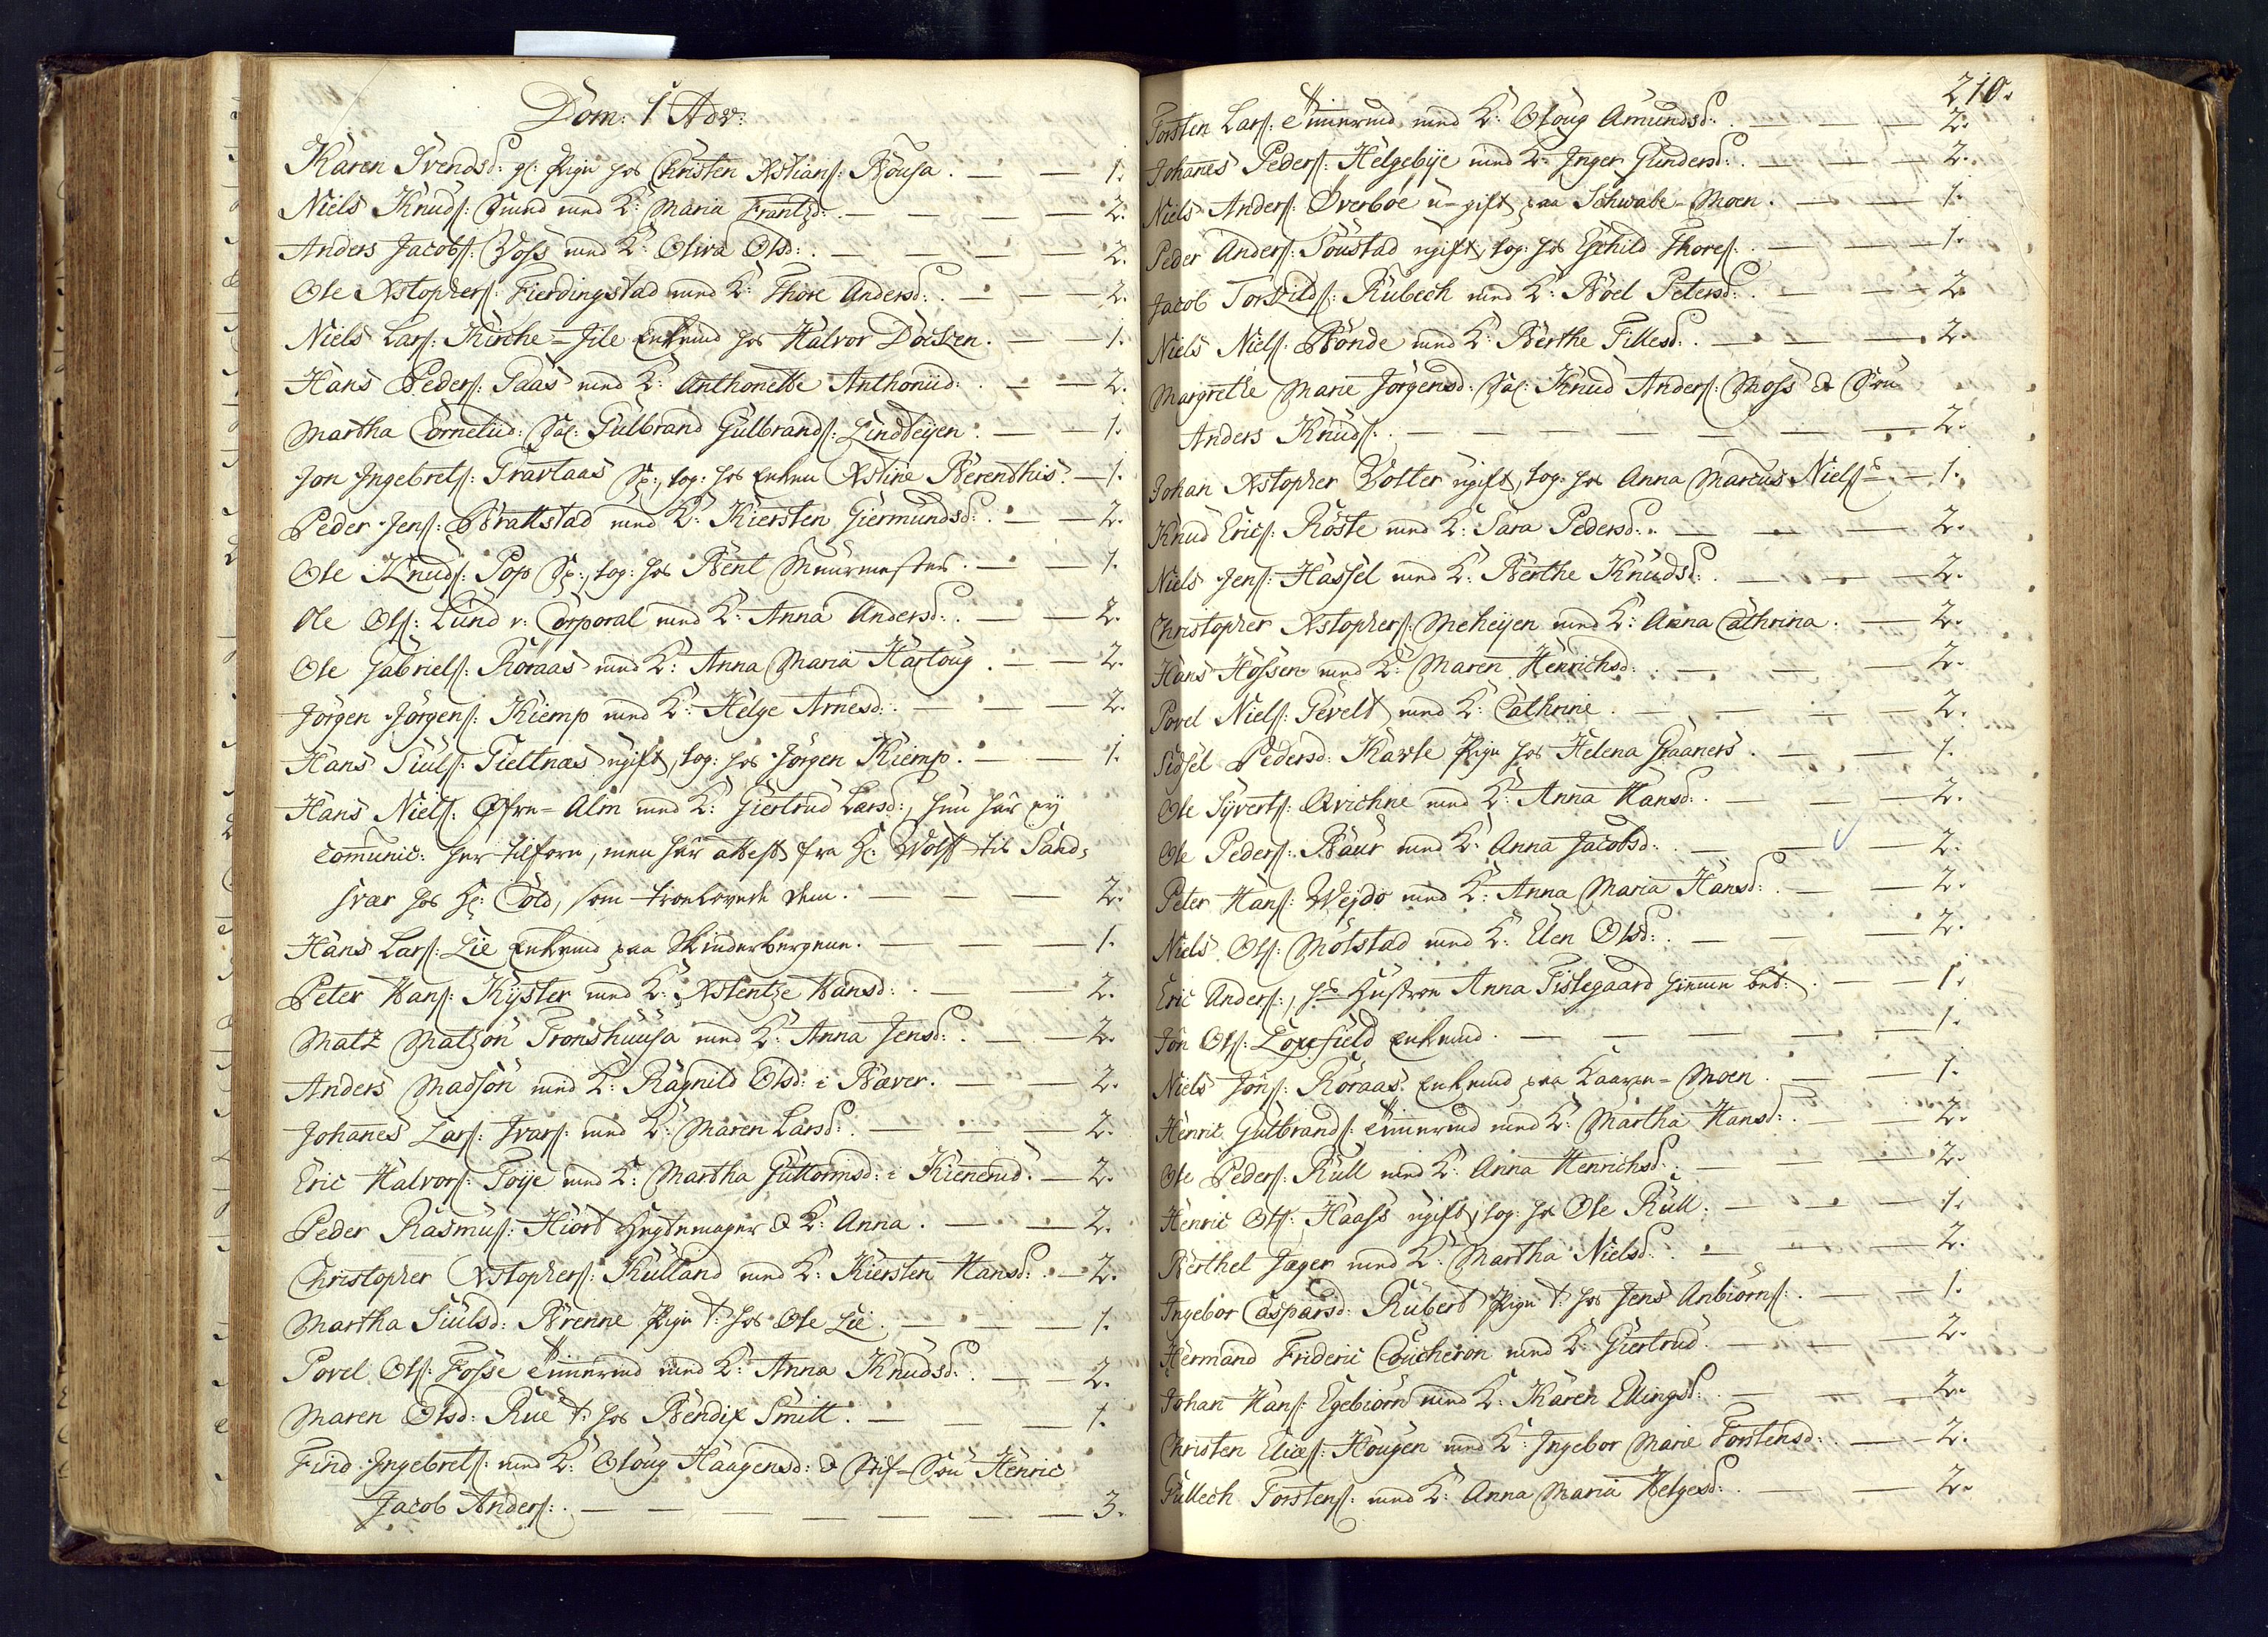 Dom: 1 Adv:
Karen Svendsd: gl: Pige hos Christen Xstians: Bøusa. — — 1.
Niels Knuds: Smed med K: Maria Frantzd: — — 2.
Anders Jacobs: Voss med K: Oliva Olsd: — — 2.
Ole Xstophers: Fierdingstad med K: Thore Andersd: — — 2.
Niels Lars: Kirche-Jile Enkemd hos Halvor Döcken. — 1.
Hans Peders: Taas med K: Anthonette Anthoniid: — — 2.
Martha Corneliid: Sal: Gulbrand Gulbrands: Lindteijen. — 1.
Jon Ingebrets: Travlaas Sp:, log: hos Enken Xstine Berenthis. — 1.
Peder Jens: Brattstad med K: Kiersten Giermundsd: — 2.
Ole Knuds: Pop Sp:, log: hos Bent Muurmester. — 1.
Ole Ols: Lund v: Corporal med K: Anna Andersd: — 2.
Ole Gabriels: Röraas med K: Anna Maria Hartoug. — 2.
Jörgen Jörgens: Kiemp med K: Helge Arnesd: — — 2.
Hans Siuls: Tieltnæs ugift, log: hos Jörgen Kiemp. — 1.
Hans Niels: Øfre-Alm med K: Giertrud Larsd:, hun har ej
Com̄unic: her tilforn, men har attest fra Hr: Wolff til Sand,
svær hos Hr: Cold, som troelovede dem. — — 2.
Hans Lars: Lie Enkemd paa Skinderbergene. — — 1.
Peter Hans: Kyster med K: Xstentze Hansd: — 2.
Matz Matzon Tronshuusa med K: Anna Jensd: — 2.
Anders Madsön med K: Ragnild Olsd: i Bæver. — 2.
Johanes Lars: Ivars: med K: Maren Larsd: — 2.
Eric Halvors: Toije med K: Martha Guttormsd: i Kienerud. — 2.
Peder Rasmus: Hiort Hegtemager & K: Anna. — — 2.
Christopher Xstophers: Kulland med K: Kiersten Hansd: — 2.
Martha Siulsd: Brenne Pige t: hos Ole Lie. — — 1.
Povel Ols: Fosse Tim̄ermd med K: Anna Knudsd: — 2.
Maren Olsd: Rue t: hos Bendix Smitt. — — 1.
Find Ingebrets: med K: Oloug Haagensd: & Stif-Sön Henric
Jacob Anders: — — — 3.
210.
Torsten Lars: Tim̄ermd med K: Oloug Amundsd: — — 2.
Johanes Peders: Helgebye med K: Inger Gundersd: — — 2.
Niels Anders: Øverböe u-gift paa Schwabe-Moen. — 1.
Peder Anders: Soustad ugift, log: hos Eschild Thores: — 1.
Jacob Torkilds: Rubech med K: Boel Petersd: — 2.
Niels Niels: Bonde med K: Berthe Tillesd: — 2.
Margrethe Marie Jörgensd: Sal: Knud Anders: Moss & Sön
Anders Knuds: — — — 2.
Johan Xstopher Votter ugift, log: hos Anna Marcus Nielss — 1.
Knud Erics: Röste med K: Sara Pedersd: — 2.
Niels Jens: Hassel med K: Berthe Knudsd: — 2.
Christopher Xstophers: Meheijen med K: Anna Cathrina. — 2.
Hans Hossen med K: Maren Henrichsd: — 2.
Povel Niels: Tevelt med K: Cathrine. — 2.
Sidsel Pedersd: Karle Pige hos Helena Graaners. — 1.
Ole Syverts: Qvichne med K: Anna Hansd: — 2.
Ole Peders: Baur med K: Anna Jacobsd: — 2.
Peter Hans: Wejdo med K: Anna Maria Hansd: — 2.
Niels Ols: Molstad med K: Elen Olsd: — 2.
Eric Anders:, hs Hustroe Anna Fislegaard hiemme bet: — 1.
Jon Ols: Loxefield Enkemd. — — 1.
Niels Jons: Röraas Enkemd paa Kaarse-Moen. — 1.
Henric Gulbrands: Tim̄ermd med K: Martha Hansd: — 2.
Ole Peders: Rull med K: Anna Henrichsd: — 2.
Henric Ols: Haass ugift, log: hos Ole Rull. — 1.
Berthel Jæger med K: Martha Nielsd: — 2.
Ingebor Caspersd: Rubert Pige t: hos Jens Anbiörns: — 1.
Hermand Frideric Coucheron med K: Giertrud. — 2.
Johan Hans: Egebiörn med K: Karen Ellingsd: — 2.
Christen Elias: Hougen med K: Ingebor Marie Torstensd: — 2.
Pullech Torstens: med K: Anna Maria Helgesd: — 2.